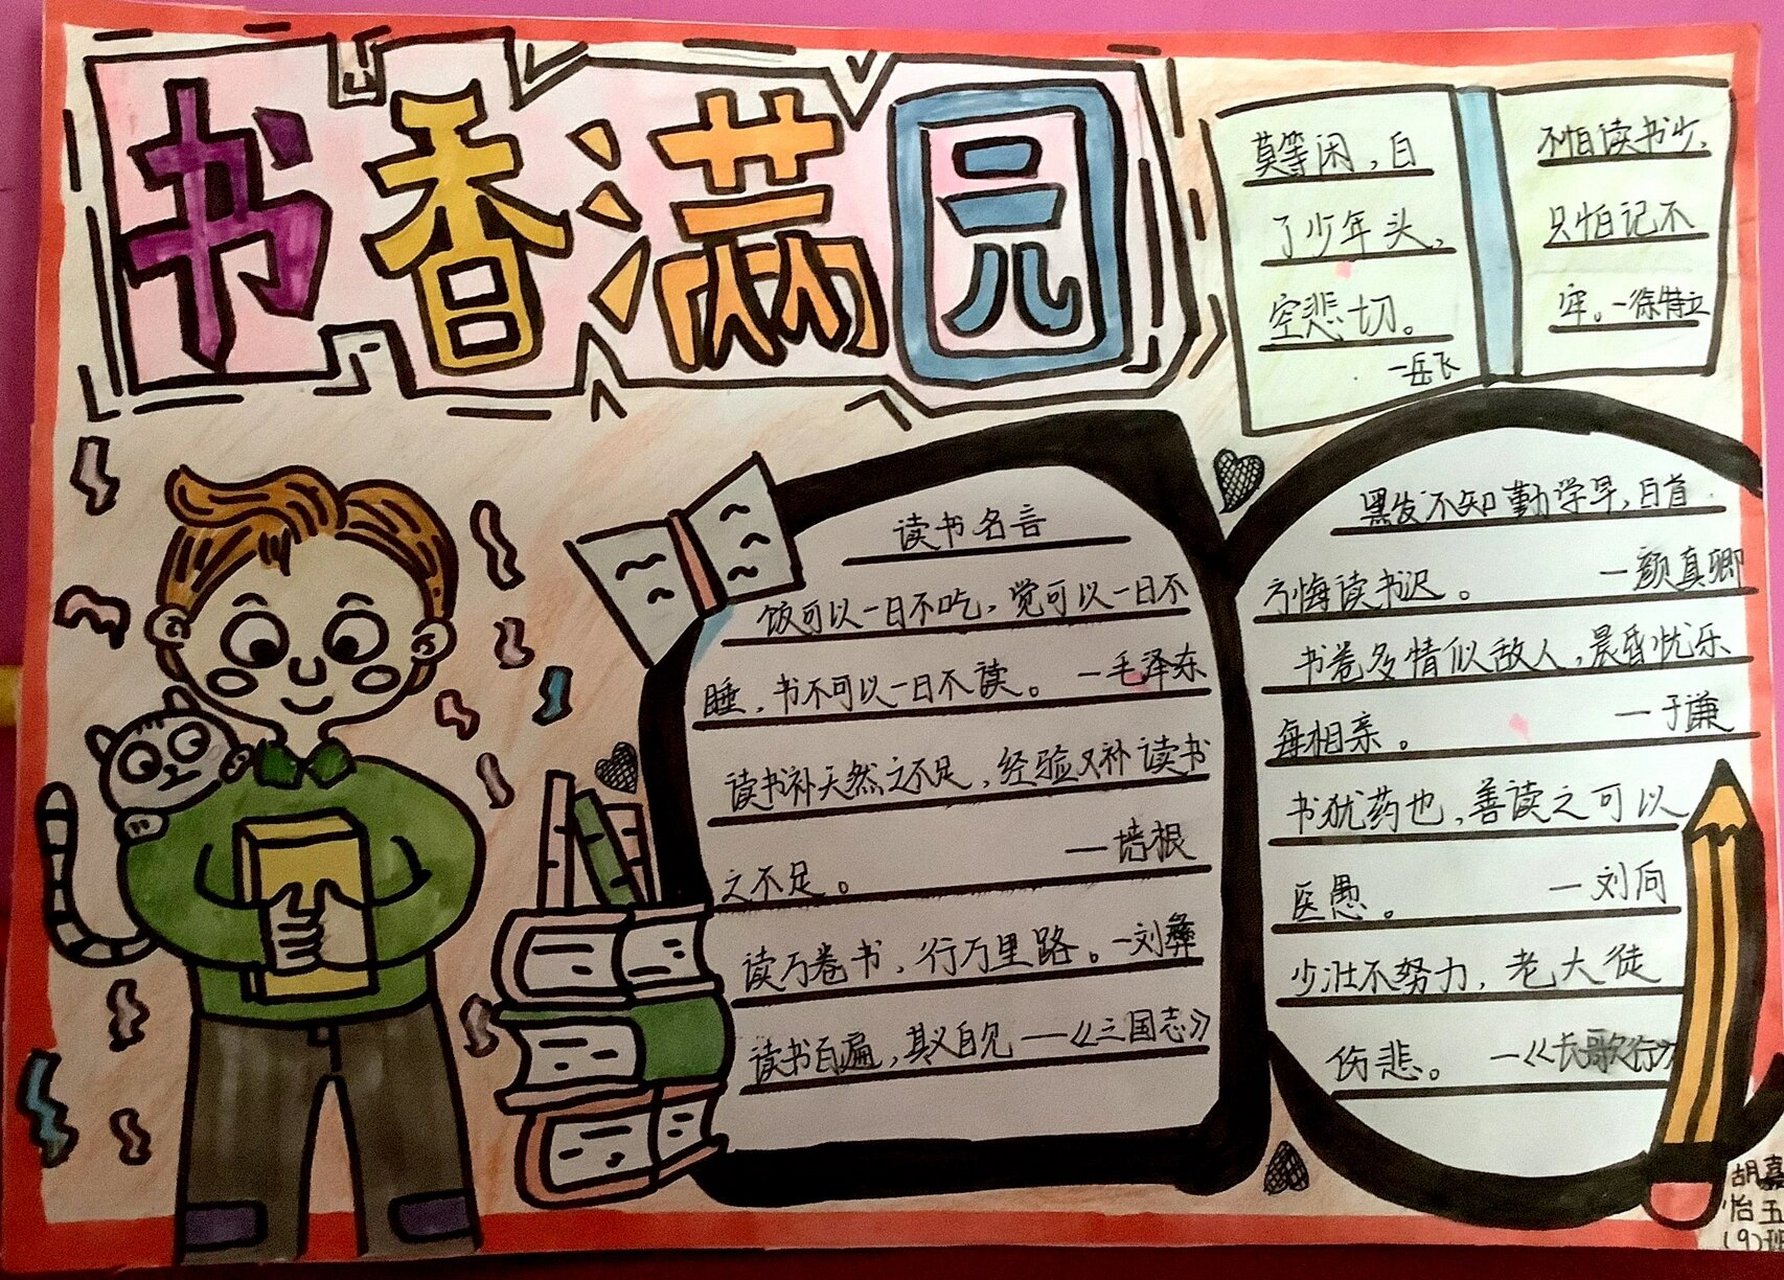 书香满园
莫等闲，白
了少年头，
空悲切。
—岳飞
不怕读书少，
只怕记不
牢。—徐特立
读书名言
饭可以一日不吃，觉可以一日不
睡，书不可以一日不读。—毛泽东
读书补天然之不足，经验又补读书
之不足。 —培根
读万卷书，行万里路。—刘彝
读书百遍，其义自见——《三国志》
黑发不知勤学早，白首
方悔读书迟。 —颜真卿
书卷多情似故人，晨昏忧乐
每相亲。 —于谦
书犹药也，善读之可以
医愚。 —刘向
少壮不努力，老大徒
伤悲。—《长歌行》
胡嘉
怡五
(9)班